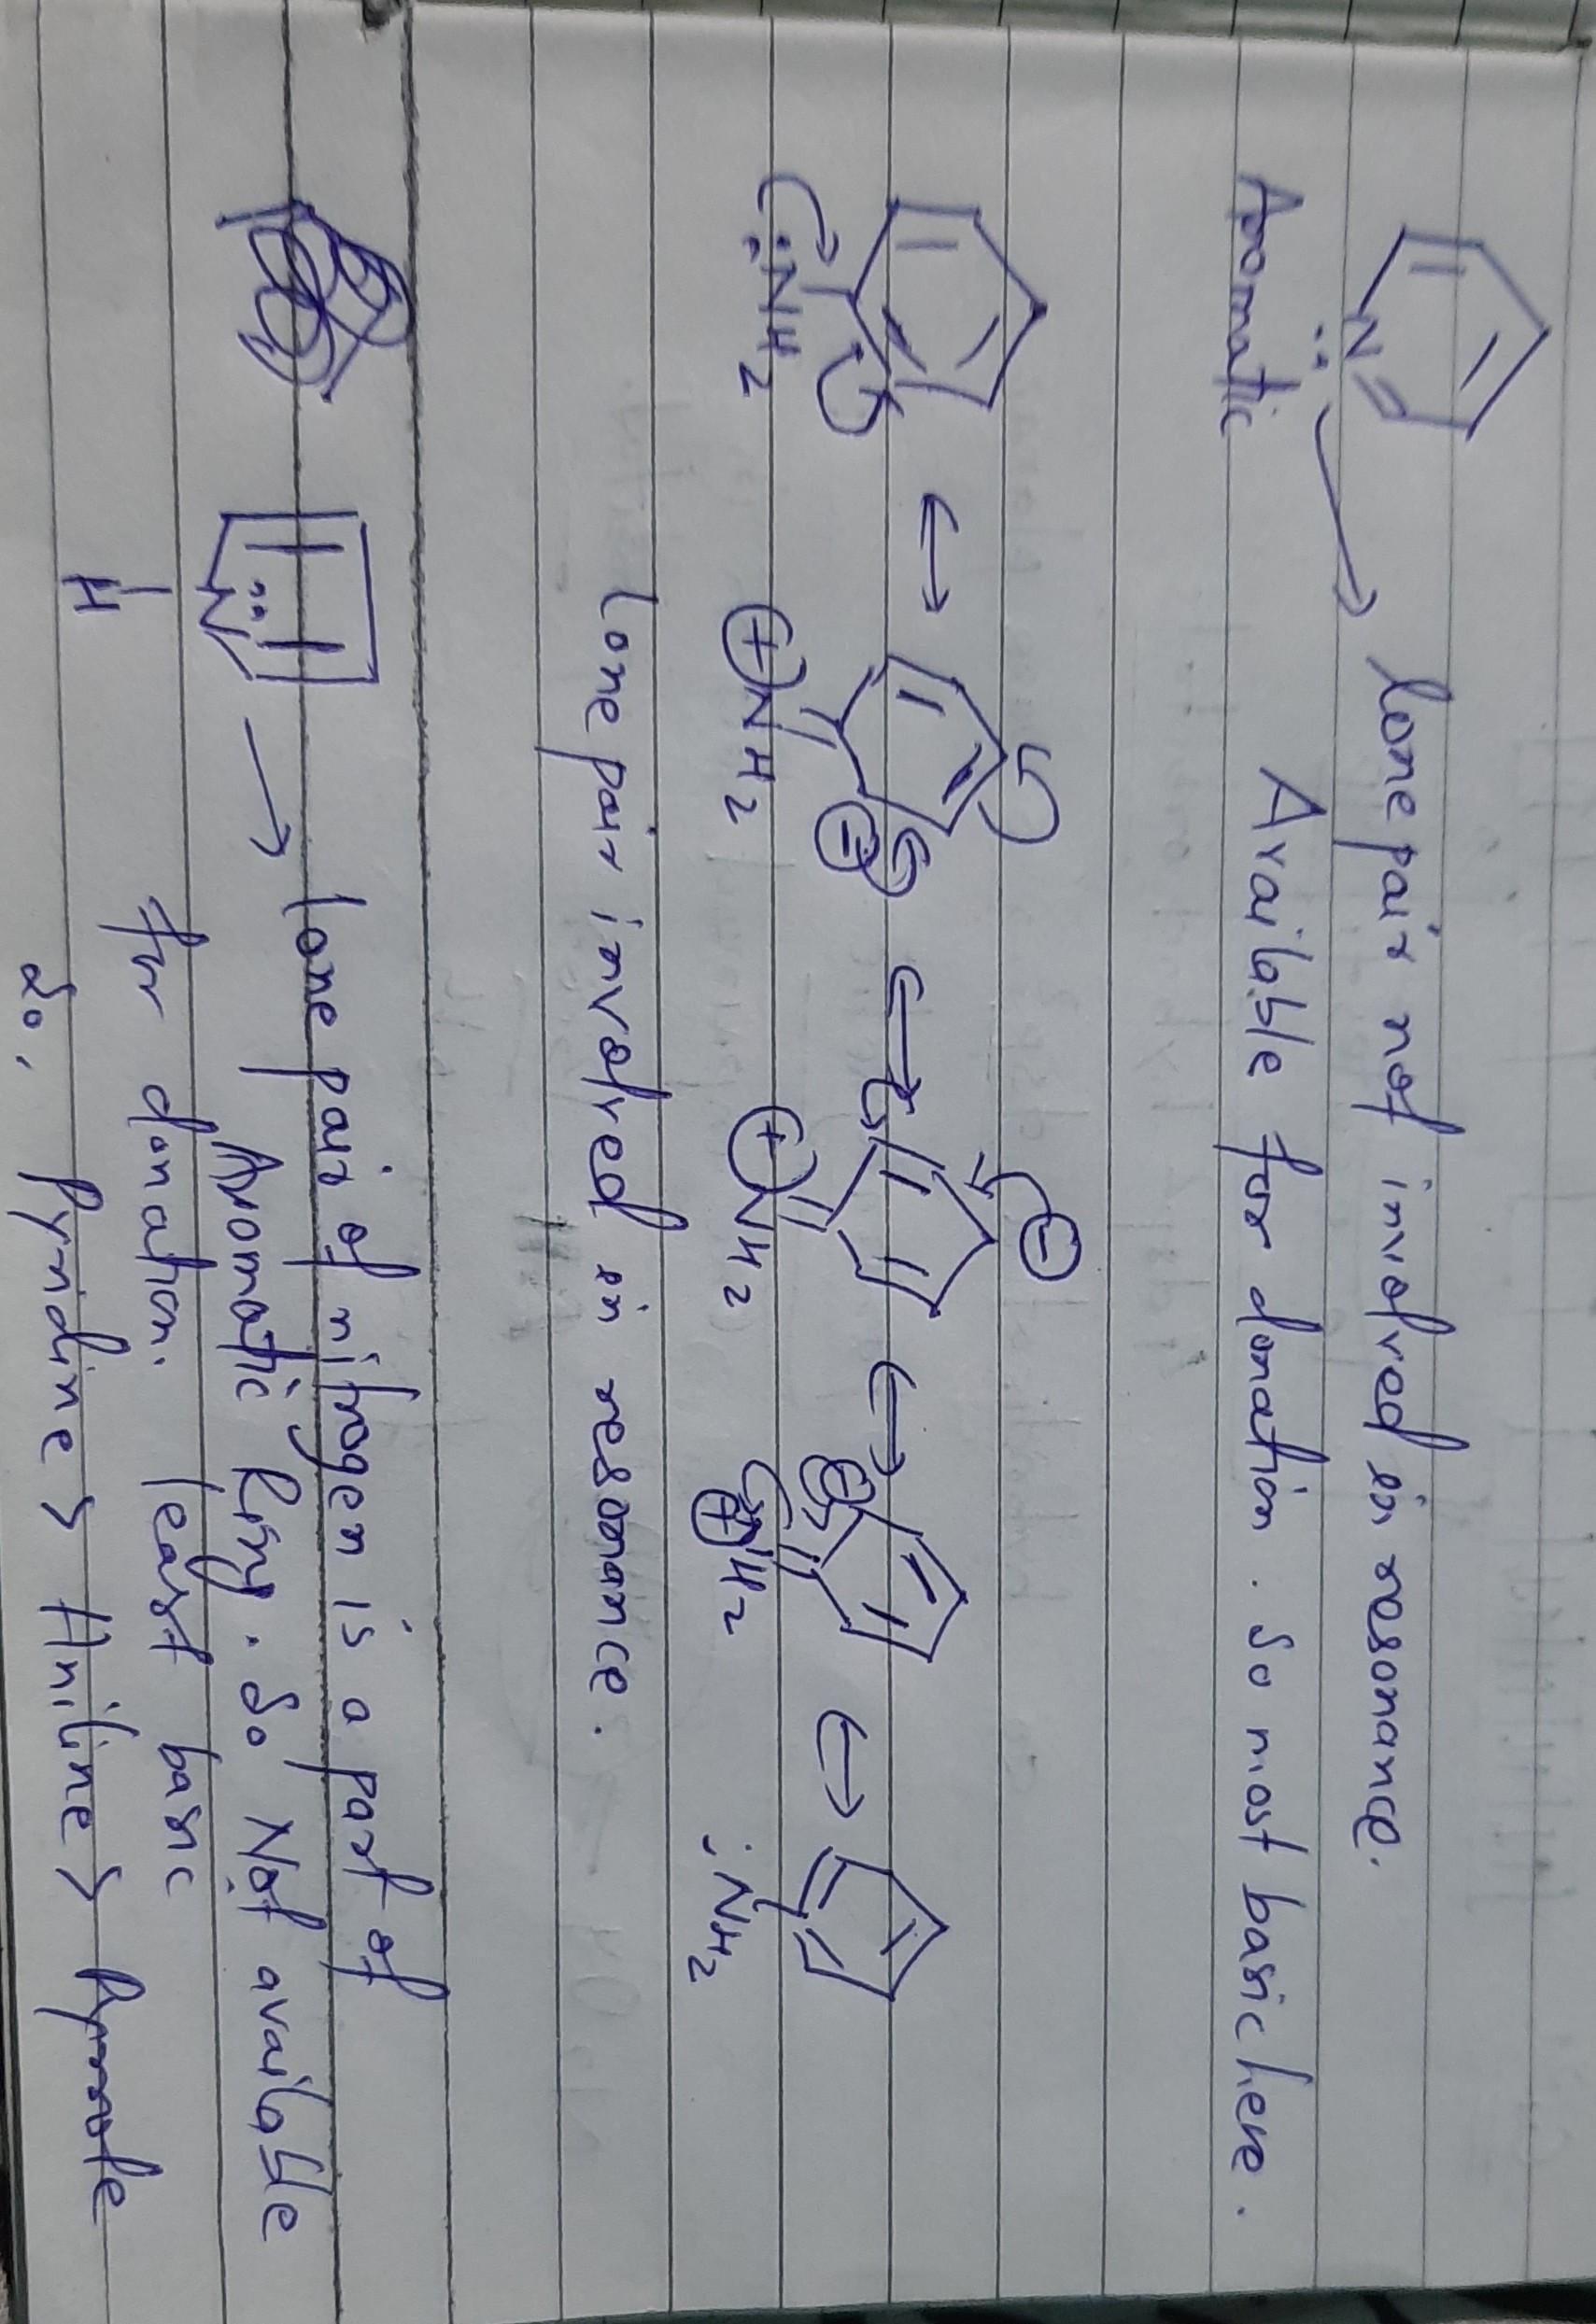 N
lone pair not involved in resonance.
Aromatic
Available for donation. So most basic here.
:NH2 ⊕NH2 ⊖ ⊕NH2 ⊖ ⊕NH2 ⊖ :NH2
lone pair involved in resonance.
N
H
lone pair of nitrogen is a part of
Aromatic Ring. So Not available
for donation. least basic
So, Pyridine > Aniline > Pyrrole